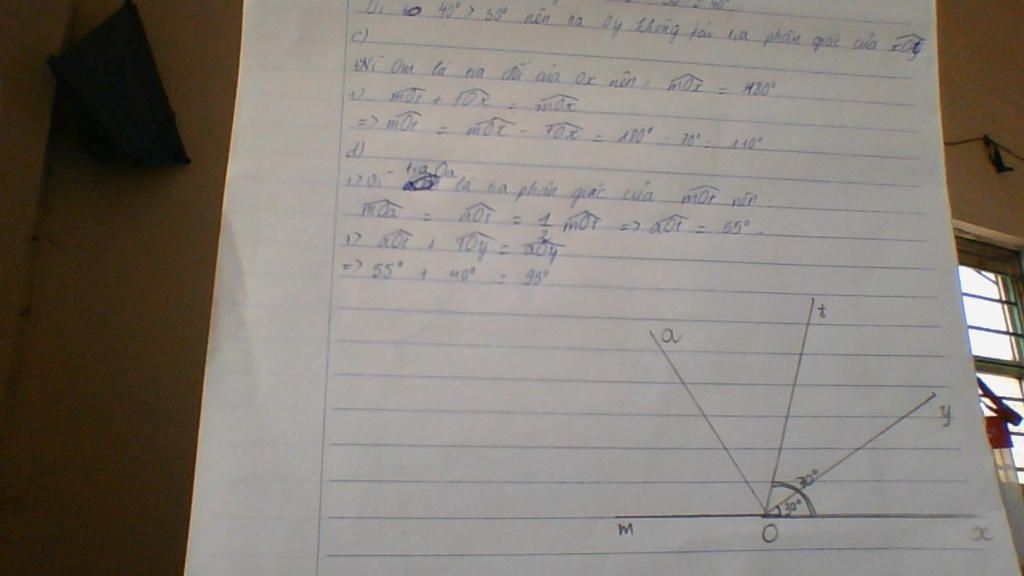 40° > 30° nên tia Oy không phải tia phân giác của xOt
c)
+) Vì Om là tia đối của Ox nên: mOx = 180°
+) mOt + tOx = mOx
=> mOt = mOx - tOx = 180° - 70° = 110°
d)
+) Vì tia Oa là tia phân giác của mOt nên:
mOa = aOt = 1/2 mOt => aOt = 55°.
+) aOt + tOy = aOy
=> 55° + 40° = 95°.
t
a
y
70°
30°
m
O
x